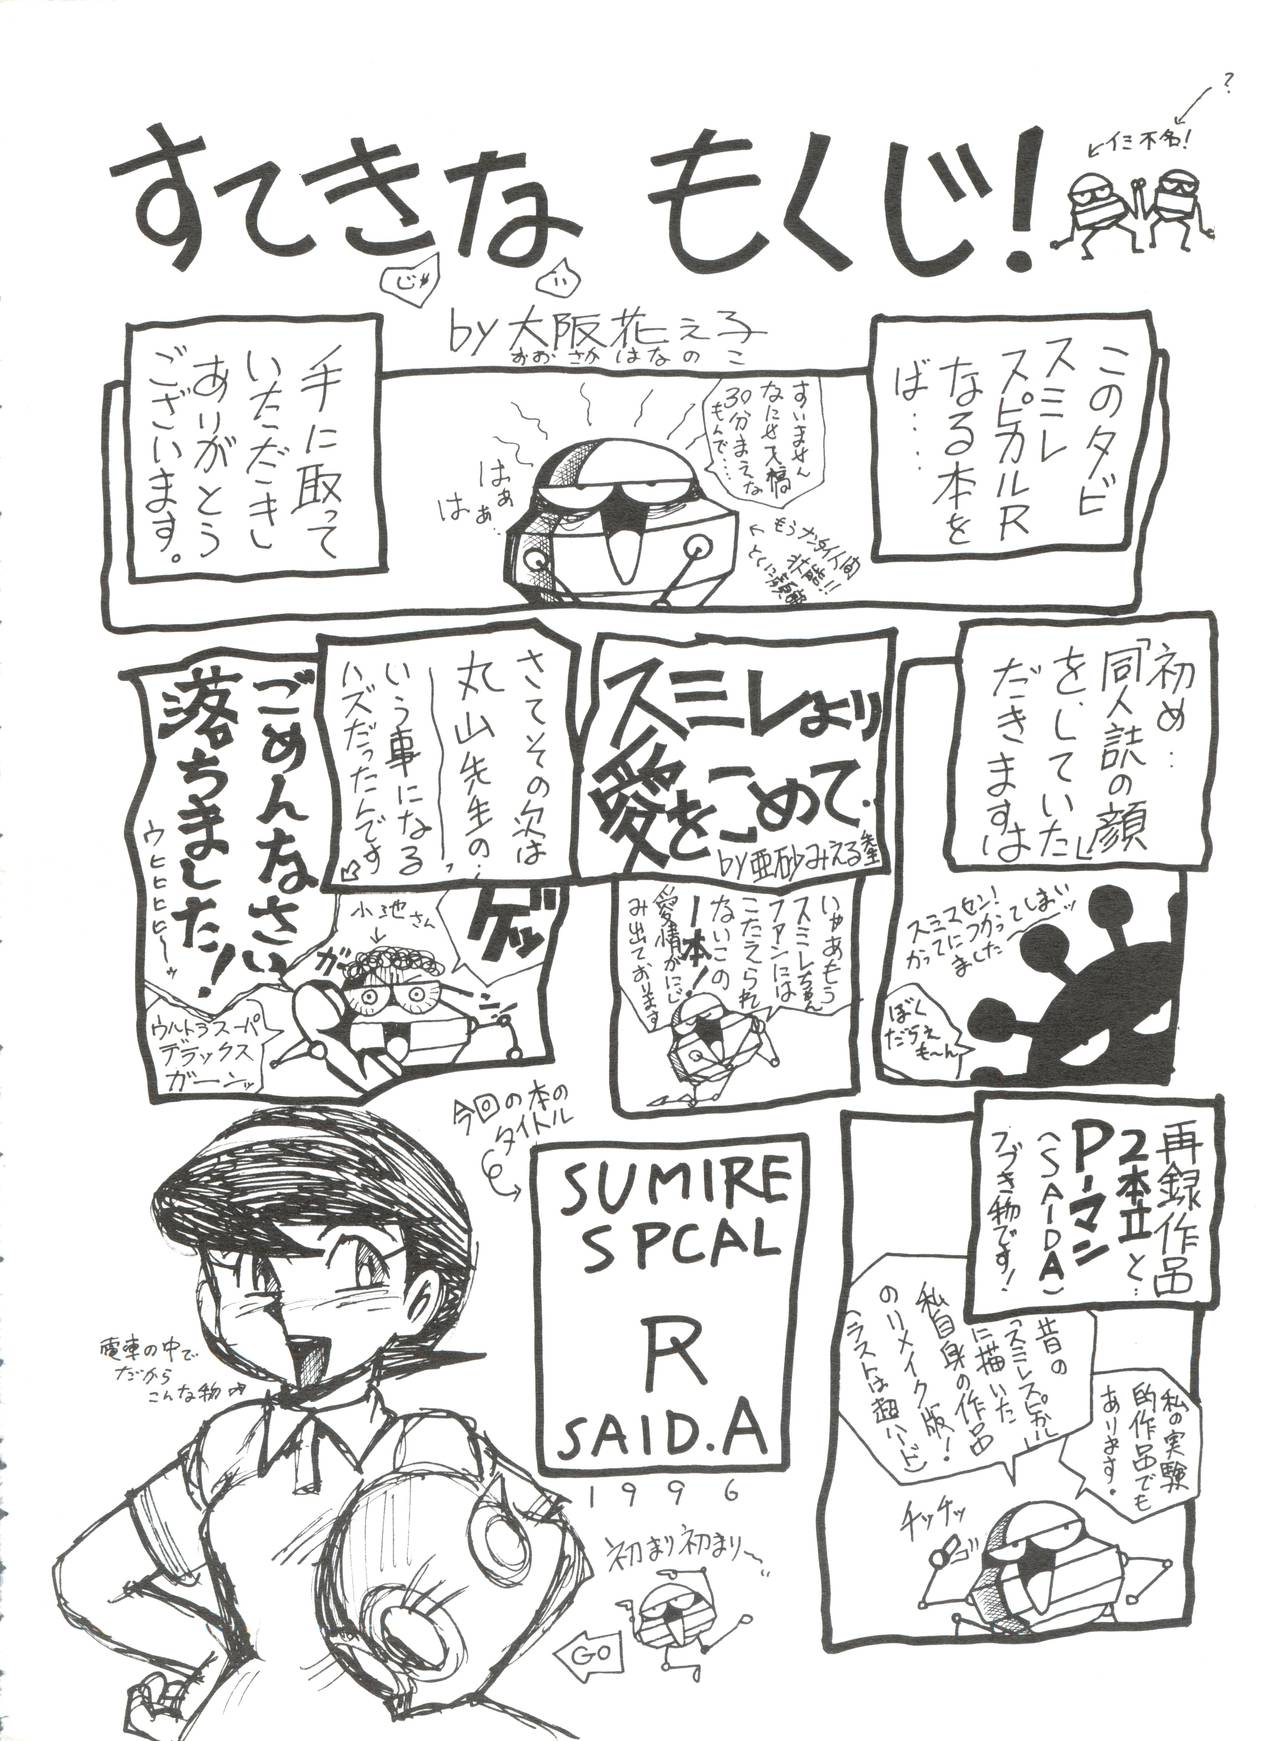 すてきな もくじ!
じゃ
?
←イミ不名!
by 大阪花ぇ子
おおさかはなのこ
このタビ
スミレ
スピカルR
なる本を
ば……
すいません
なにせ
30分まえな
もんで……
はぁ
はぁ…
手に取って
いただきし
ありがとう
ございます。
初め…
「同人誌の顔」
をしていた
だきますは
スミスセン!
かってにつかっ
てしまい
ましたーッ
ぼく
だらぇ
も〜ん
スミレより
愛をこめて.
by 亜砂みえる先生
いやあもう
スミレちゃん
ファンには
こたえられ
ないこの
一本!
愛情がにじ
み出ております
さてその次は
丸山先生の…
いう事になる
ハズだったんです
ゲッ
小池さん
↓
ガーン
ごめんなさい
落ちました!
ウヒヒヒヒ〜ッ
ウルトラスーパ
デラックス
ガーンッ
再録作品
2本立と…
P-マン
(SAIDA)
フづき物です!
私の実験
的作品でも
あります.
昔の
「スミレスピカル」
に描いた
私自身の作品
のリメイク版!
(ラストは超ハード)
チッチッ
今回の本の
タイトル
SUMIRE
SPCAL
R
SAID.A
1996
電車の中で
だから
こんな物
初まり初まり〜
GO